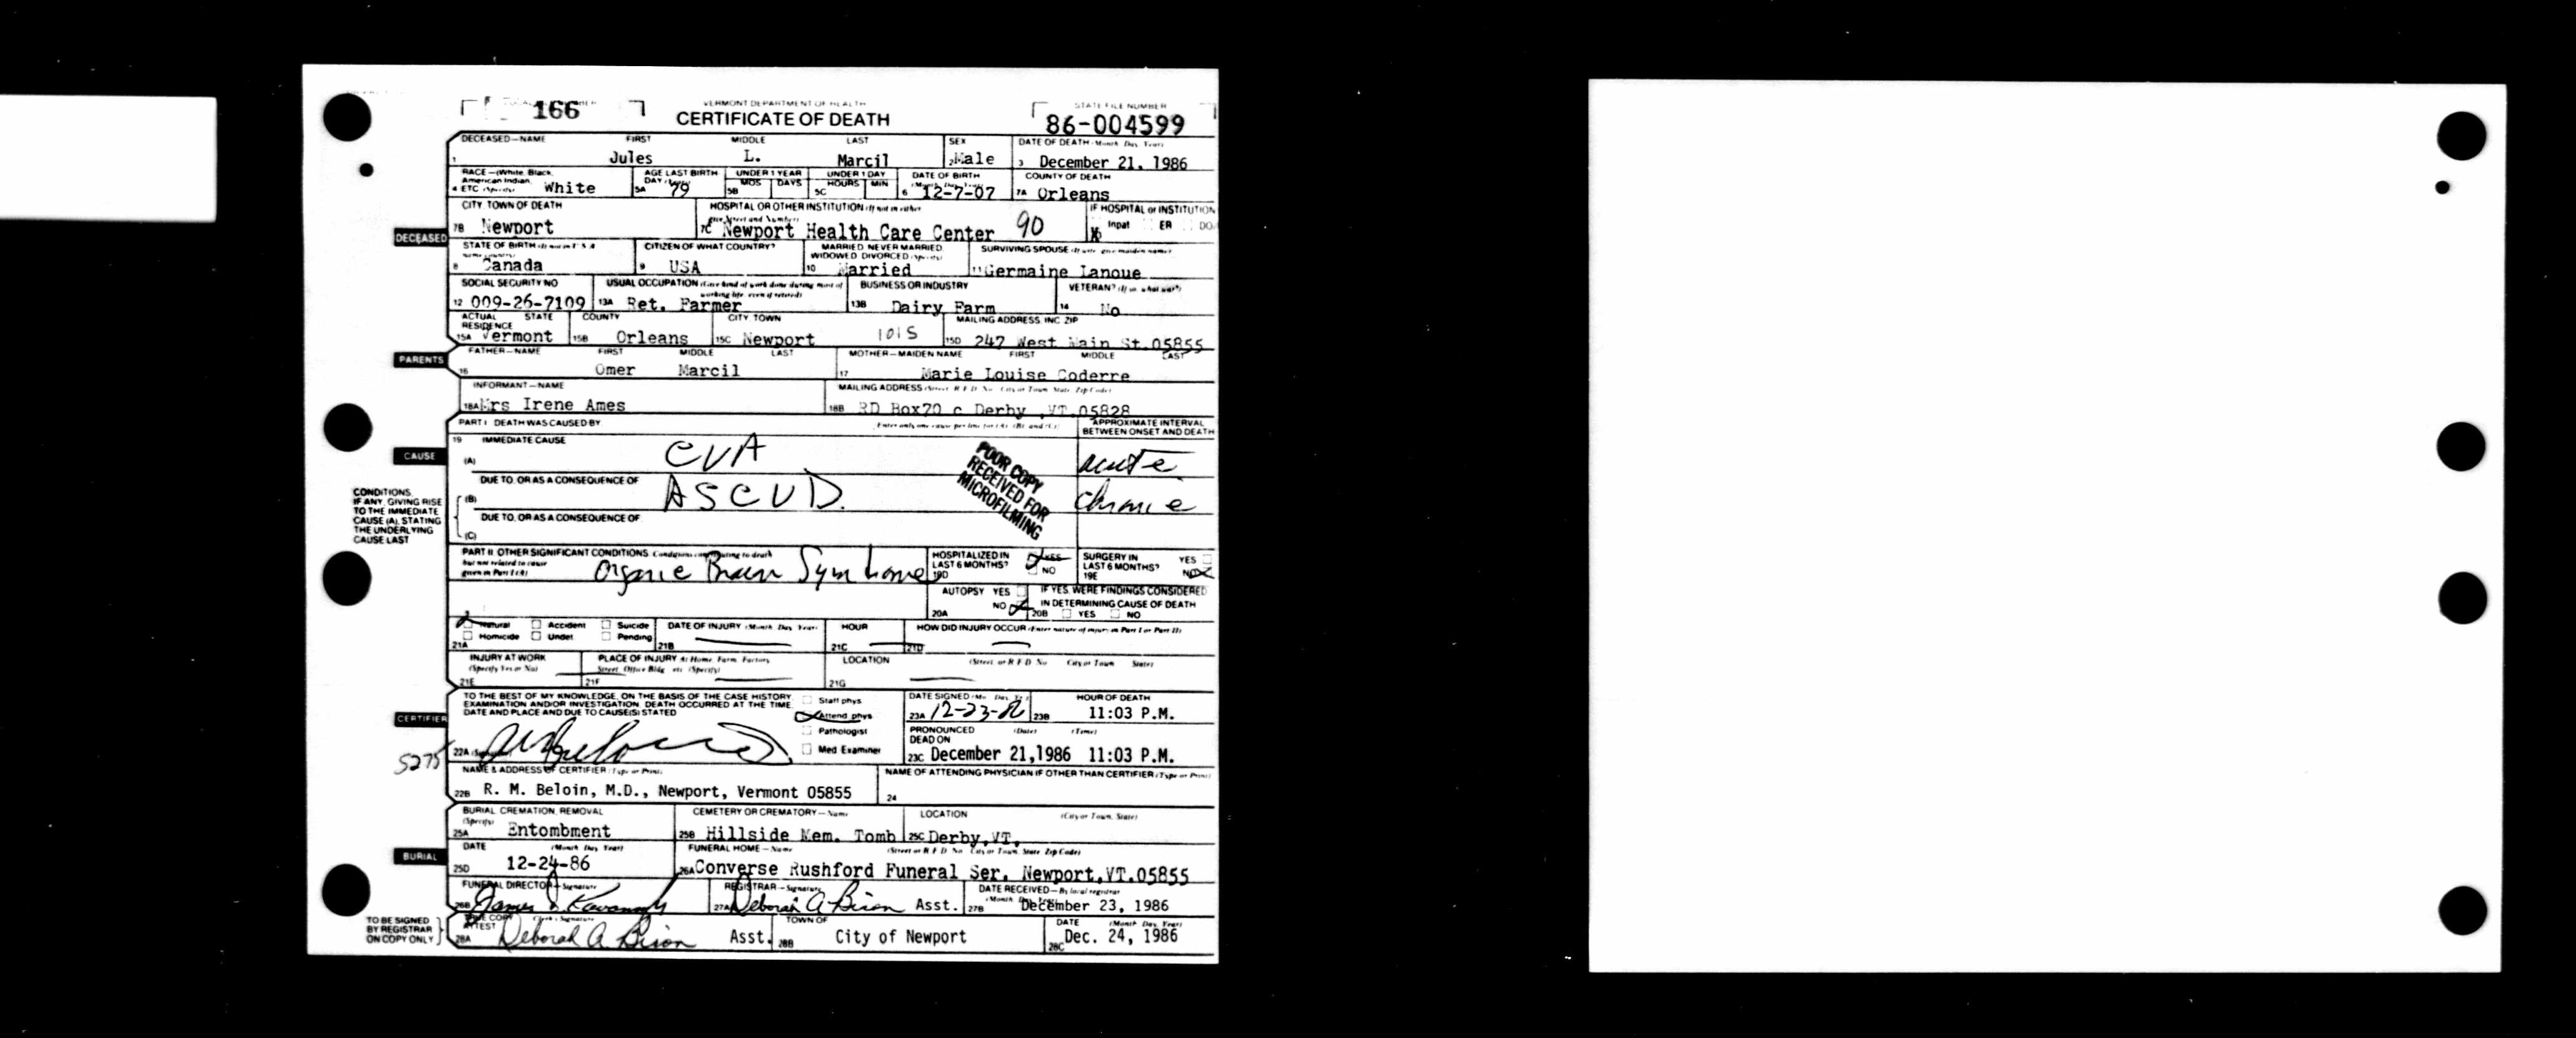 166
VERMONT DEPARTMENT OF HEALTH
CERTIFICATE OF DEATH
STATE FILE NUMBER
86-004599
DECEASED—NAME FIRST MIDDLE LAST SEX DATE OF DEATH (Month, Day, Year)
1 Jules L. Marcil 2 Male 3 December 21, 1986
RACE—(White, Black, American Indian, ETC. (Specify) AGE LAST BIRTH DAY UNDER 1 YEAR UNDER 1 DAY DATE OF BIRTH (Month, Day, Year) COUNTY OF DEATH
4 White 5A 79 5B MOS DAYS 5C HOURS MIN 6 12-7-07 7A Orleans
CITY, TOWN OF DEATH HOSPITAL OR OTHER INSTITUTION (If not in either give Street and Number) IF HOSPITAL or INSTITUTION
7B Newport 7C Newport Health Care Center 90 X Inpat ER DOA
STATE OF BIRTH (If not in U.S.A. name country) CITIZEN OF WHAT COUNTRY? MARRIED NEVER MARRIED WIDOWED DIVORCED (Specify) SURVIVING SPOUSE (If wife give maiden name)
8 Canada 9 USA 10 Married 11 Germaine Lanoue
SOCIAL SECURITY NO USUAL OCCUPATION (Give kind of work done during most of working life even if retired) BUSINESS OR INDUSTRY VETERAN? (If so what war?)
12 009-26-7109 13A Ret. Farmer 13B Dairy Farm 14 No
ACTUAL RESIDENCE STATE COUNTY CITY, TOWN MAILING ADDRESS, INC ZIP
15A Vermont 15B Orleans 15C Newport 1015 15D 247 West Main St.05855
FATHER—NAME FIRST MIDDLE LAST MOTHER—MAIDEN NAME FIRST MIDDLE LAST
16 Omer Marcil 17 Marie Louise Coderre
INFORMANT—NAME MAILING ADDRESS (Street, R.F.D. No. City or Town, State, Zip Code)
18A Mrs Irene Ames 18B RD Box70 c Derby ,VT.05828
PART I DEATH WAS CAUSED BY Enter only one cause per line for (A), (B), and (C) APPROXIMATE INTERVAL BETWEEN ONSET AND DEATH
19 IMMEDIATE CAUSE
(A) CVA acute
DUE TO, OR AS A CONSEQUENCE OF
(B) ASCVD. chronic
DUE TO, OR AS A CONSEQUENCE OF
(C)
POOR COPY
RECEIVED FOR
MICROFILMING
PART II OTHER SIGNIFICANT CONDITIONS Conditions contributing to death but not related to cause given in Part I (A)
Organic Brain Syndrome
HOSPITALIZED IN LAST 6 MONTHS? 19D YES NO SURGERY IN LAST 6 MONTHS? 19E YES NO
AUTOPSY YES NO 20A IF YES, WERE FINDINGS CONSIDERED IN DETERMINING CAUSE OF DEATH 20B YES NO
Natural Accident Suicide DATE OF INJURY (Month, Day, Year) HOUR HOW DID INJURY OCCUR (Enter nature of injury in Part I or Part II)
21A Homicide Undet Pending 21B 21C 21D
INJURY AT WORK (Specify Yes or No) PLACE OF INJURY At Home, Farm, Factory, Street, Office Bldg. etc. (Specify) LOCATION (Street, or R.F.D. No City or Town State)
21E 21F 21G
TO THE BEST OF MY KNOWLEDGE, ON THE BASIS OF THE CASE HISTORY, EXAMINATION AND/OR INVESTIGATION, DEATH OCCURRED AT THE TIME, DATE AND PLACE AND DUE TO CAUSE(S) STATED
Staff phys
Attend phys
Pathologist
Med Examiner
DATE SIGNED (Mo. Day, Yr.) HOUR OF DEATH
23A 12-23-86 23B 11:03 P.M.
PRONOUNCED DEAD ON (Date) (Time)
23C December 21,1986 11:03 P.M.
22A (Signature)
5275
NAME & ADDRESS OF CERTIFIER (Type or Print) NAME OF ATTENDING PHYSICIAN IF OTHER THAN CERTIFIER (Type or Print)
22B R. M. Beloin, M.D., Newport, Vermont 05855 24
BURIAL, CREMATION, REMOVAL (Specify) CEMETERY OR CREMATORY—Name LOCATION (City or Town, State)
25A Entombment 25B Hillside Mem. Tomb 25C Derby,VT.
DATE (Month, Day, Year) FUNERAL HOME—Name (Street or R.F.D. No City or Town, State, Zip Code)
25D 12-24-86 26A Converse Rushford Funeral Ser. Newport,VT.05855
FUNERAL DIRECTOR—Signature REGISTRAR—Signature DATE RECEIVED—By local registrar (Month, Day, Year)
26B James J. Kavanagh 27A Deborah A Biron Asst. 27B December 23, 1986
TRUE COPY ATTEST Clerk's Signature TOWN OF DATE (Month, Day, Year)
28A Deborah A. Biron Asst. 28B City of Newport 28C Dec. 24, 1986
DECEASED
PARENTS
CAUSE
CONDITIONS, IF ANY, GIVING RISE TO THE IMMEDIATE CAUSE (A), STATING THE UNDERLYING CAUSE LAST
CERTIFIER
BURIAL
TO BE SIGNED BY REGISTRAR ON COPY ONLY